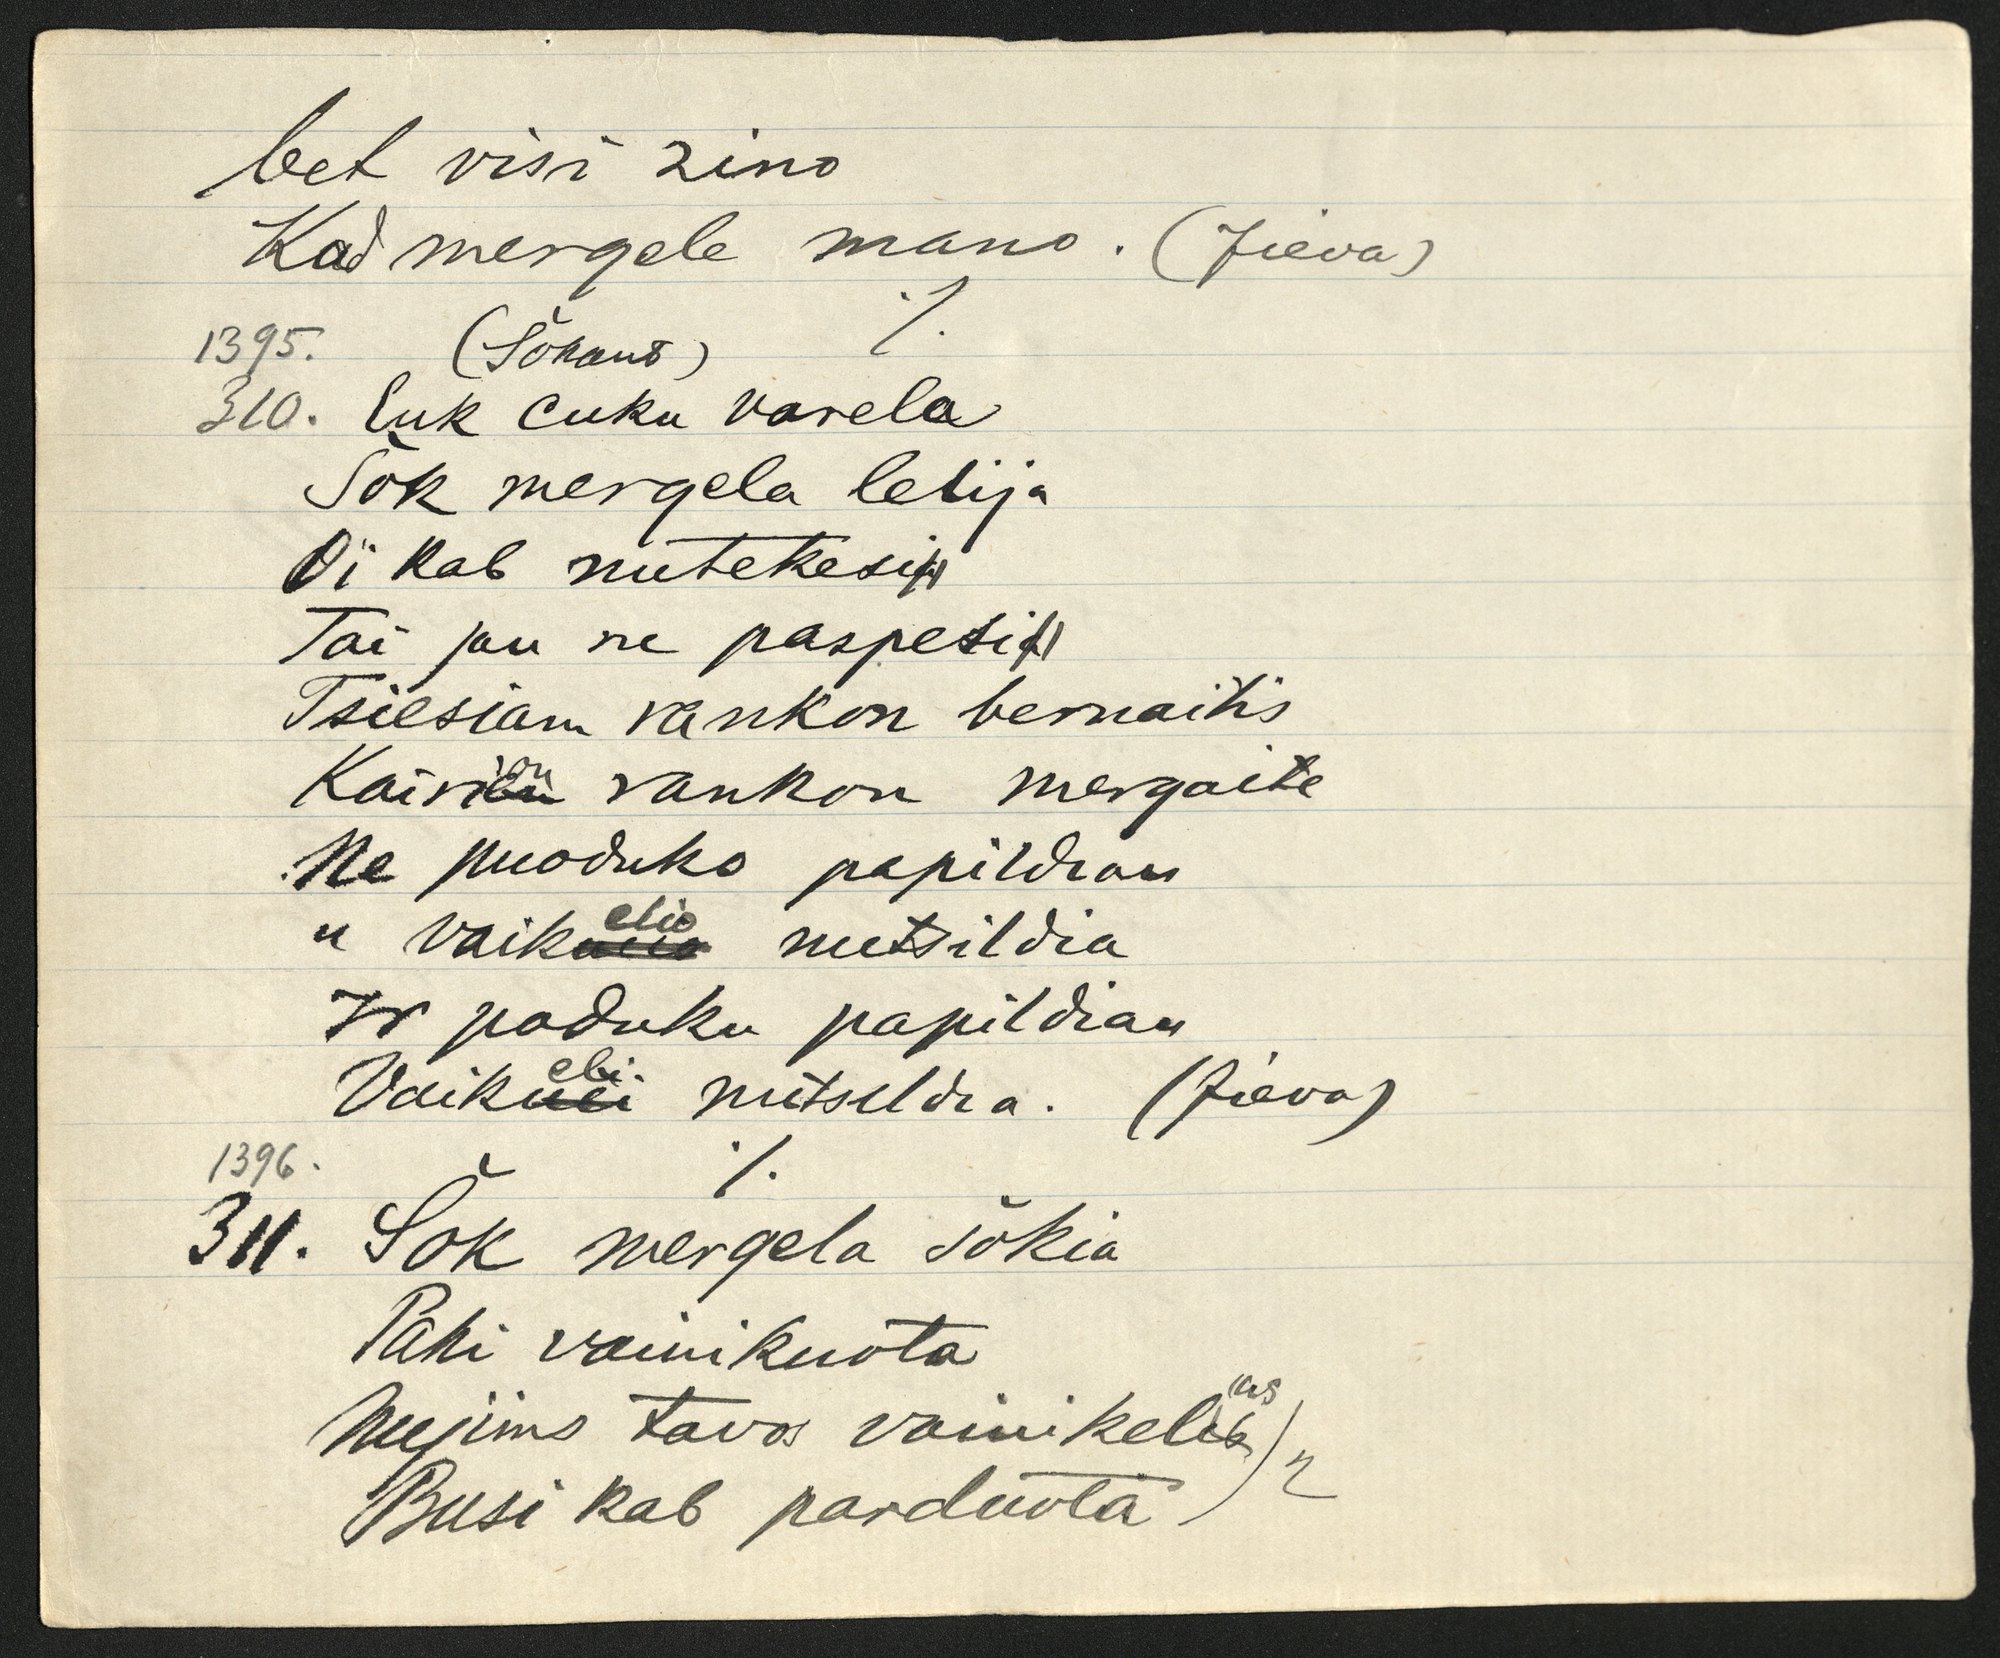 bet visi zino
Kad mergele mano. (Jieva)
%
1395. (Šokant)
310. Cuk cuku varela
Šok mergela lelija
Oi kab nutekesi
Tai jau ne paspesi
Tsiesiam rankon bernaitis
Kairion rankon mergaite
Ne puoduko papildiau
" vaikelio nutsildia
Ir poduku papildiau
Vaikeli nutsildia. (Jieva)
%
1396.
311. Šok mergela šokia
Paki vainikuota
Nujims tavos vainikelius
Busi kab parduota ) 2